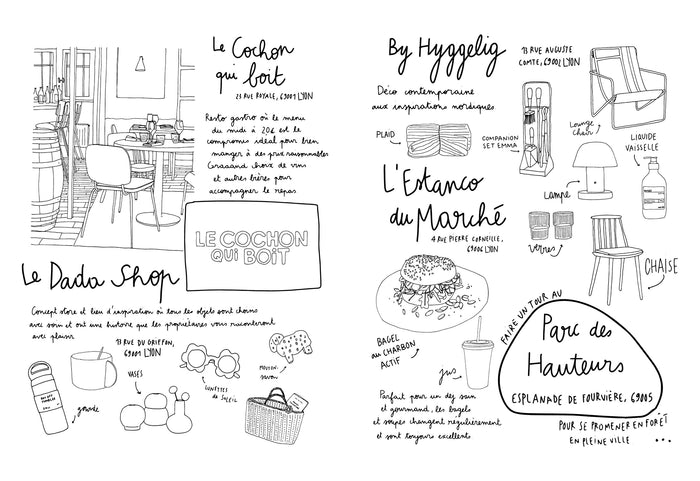 Le Cochon
qui boit
23 RUE ROYALE, 69001 LYON
Resto gastro où le menu
du midi à 20€ est le
compromis idéal pour bien
manger à des prix raisonnables
Graaaand choix de vins
et autres bières pour
accompagner le repas
LE COCHON
QUI BOIT
Le Dada Shop
Concept store et lieu d'inspiration où tous les objets sont choisis
avec soin et ont une histoire que les propriétaires vous raconteront
avec plaisir
13 RUE DU GRIFFON,
69001 LYON
VASES
gourde
LUNETTES
de SOLEIL
By Hyggelig
13 RUE AUGUSTE
COMTE, 69002 LYON
Déco contemporaine
aux inspirations nordiques.
PLAID
COMPANION
SET EMMA
Lounge
chair
LIQUIDE
VAISSELLE
Lampe
verres
CHAISE
L'Estanco
du Marché
4 RUE PIERRE CORNEILLE,
69006 LYON
BAGEL
au CHARBON
ACTIF
jus
Parfait pour un déj sain
et gourmand, les bagels
et soupes changent régulièrement
et sont toujours excellents
FAIRE UN TOUR AU
Parc des
Hauteurs
ESPLANADE DE FOURVIÈRE, 69005
POUR SE PROMENER EN FORÊT
EN PLEINE VILLE ...